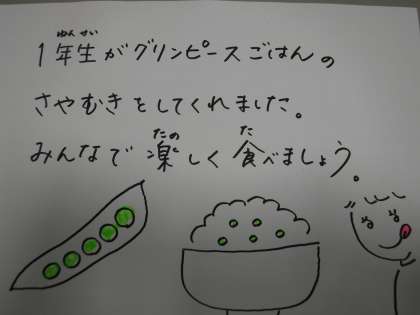 1年生がグリンピースごはんの
さやむきをしてくれました。
みんなで楽しく食べましょう。